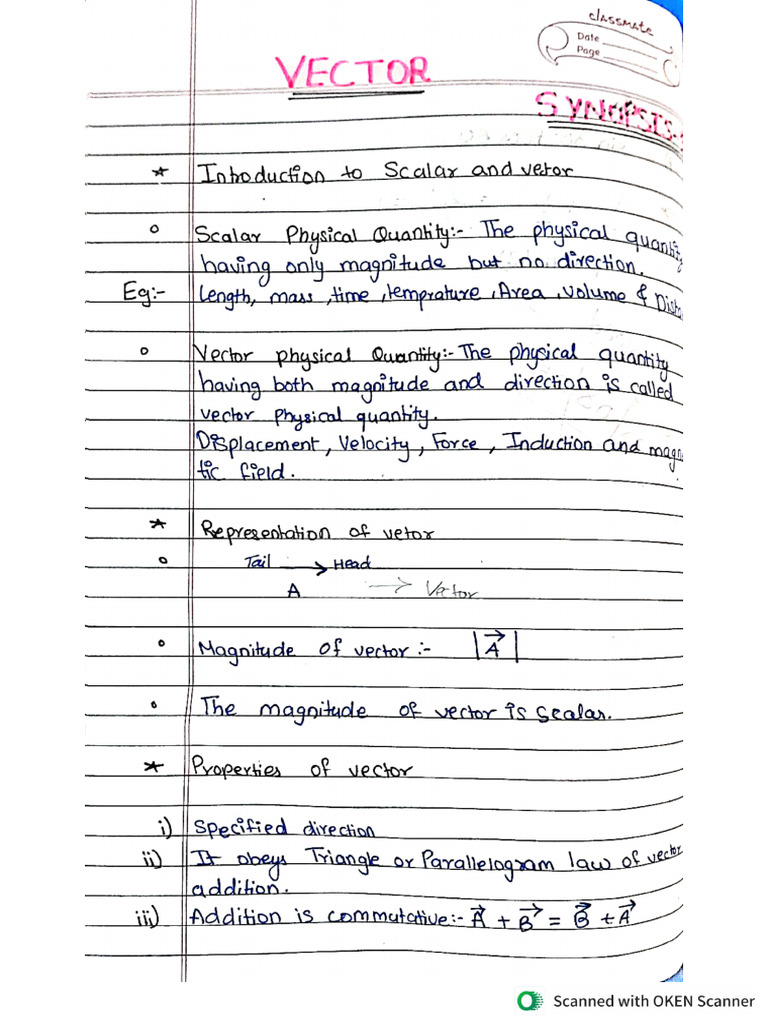 classmate
Date
Page
VECTOR
SYNOPSIS-
* Introduction to Scalar and vetor
o Scalar Physical Quantity:- The physical quantity
having only magnitude but no direction.
Eg:- Length, mass, time, temprature, Area, volume & Dist
o Vector physical Quantity:- The physical quantity
having both magnitude and direction is called
vector physical quantity.
Displacement, Velocity, Force, Induction and magn
tic field.
* Representation of vetor
o Tail → Head
A → Vector
o Magnitude of vector:- |A⃗|
o The magnitude of vector is scalar.
* Properties of vector
i) Specified direction
ii) It obeys Triangle or Parallelogram law of vector
addition.
iii) Addition is commutative:- A⃗ + B⃗ = B⃗ + A⃗
Scanned with OKEN Scanner